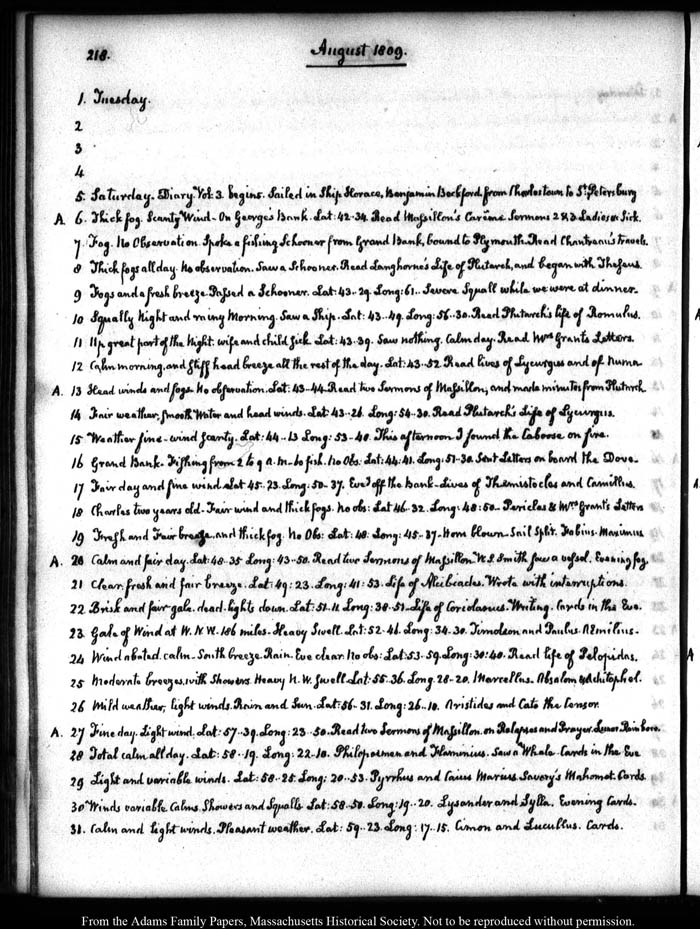 218.
August 1809.
1. Tuesday.
2
3
4
5. Saturday. Diary Vol: 3. begins. Sailed in Ship Horace, Benjamin Beckford, from Charlestown to St. Petersburg
A. 6. Thick fog. Scanty Wind - On George's Bank. Lat: 42-34. Read Massillon's Carême Sermons 2 & 3. Ladies Sick.
7. Fog. No Observation. Spoke a fishing Schooner from Grand Bank, bound to Plymouth. Read Chantrau's travels.
8 Thick fogs all day. No observation. Saw a Schooner. Read Langhorne's Life of Plutarch, and began with Theseus.
9 Fogs and a fresh breeze. Passed a Schooner. Lat: 43..29. Long: 61.. Severe Squall while we were at dinner.
10 Squally Night and rainy Morning. Saw a Ship. Lat: 43..49. Long: 56..30. Read Plutarch's life of Romulus.
11 Up great part of the Night. wife and child sick. Lat: 43..39. Saw nothing. Calm day. Read Mrs Grants Letters.
12 Calm morning, and stiff head breeze all the rest of the day. Lat: 43..52. Read lives of Lycurgus and of Numa
A. 13 Head winds and fogs. No observation. Lat: 43-44. Read two Sermons of Massillon, and made minutes from Plutarch
14 Fair weather, smooth Water and head winds. Lat: 43-26. Long: 54-30. Read Plutarch's Life of Lycurgus.
15 Weather fine - wind scanty. Lat: 44-13 Long: 53-40. This afternoon I found the Caboose on fire.
16 Grand Bank. Fishing from 2 to 9 a.m. 60 fish. No Obs: Lat: 44:41. Long: 51-30. Sent Letters on board the Dove.
17 Fair day and fine wind. Lat 45-23. Long: 50-37. Eveg off the Bank - Lives of Themistocles and Camillus.
18 Charles two years old. Fair wind and thick fogs. No obs: Lat 46-32. Long: 48:50. Pericles & Mrs Grant's Letters
19 Fresh and Fair breeze, and thick fog. No Obs: Lat: 48. Long: 45-37. Horn blown. Sail Split. Fabius. Maximus
A. 20 Calm and fair day. Lat: 48-35 Long: 43-50. Read two Sermons of Massillon. W. S. Smith saw a vessel. Evening fog.
21 Clear, fresh and fair breeze. Lat: 49:23. Long: 41:53. Life of Alcibiades. Wrote with interruptions.
22 Brisk and fair gale. dead-lights down. Lat: 51-11. Long: 38-51. Life of Coriolanus. Writing. Cards in the Eve.
23. Gale of Wind at W.N.W. 186 miles. Heavy Swell. Lat: 52-46. Long: 34-30. Timoleon and Paulus Æmilius.
24 Wind abated. calm - South breeze. Rain. Eve clear. No obs: Lat: 53-59. Long: 30:40. Read life of Pelopidas.
25 Moderate breezes, with Showers. Heavy N.W. Swell. Lat: 55-36. Long: 28-20. Marcellus. Absalom & Achitophel.
26 Mild weather, light winds. Rain and Sun. Lat: 56-31. Long: 26-10. Aristides and Cato the Censor.
A. 27 Fine day. Light wind. Lat: 57-39. Long: 23-50. Read two Sermons of Massillon. on Relapses and Prayer. Lunar Rainbow.
28 Total calm all day. Lat: 58-19. Long: 22-10. Philopoemen and Flaminius. Saw a Whale. Cards in the Eve
29 Light and variable winds. Lat: 58-25. Long: 20..53. Pyrrhus and Caius Marius. Savory's Mahomet. Cards
30 Winds variable. Calms, Showers and Squalls. Lat: 58-50. Long: 19..20. Lysander and Sylla. Evening Cards.
31. Calm and light winds. Pleasant weather. Lat: 59..23. Long: 17..15. Cimon and Lucullus. Cards.
From the Adams Family Papers, Massachusetts Historical Society. Not to be reproduced without permission.